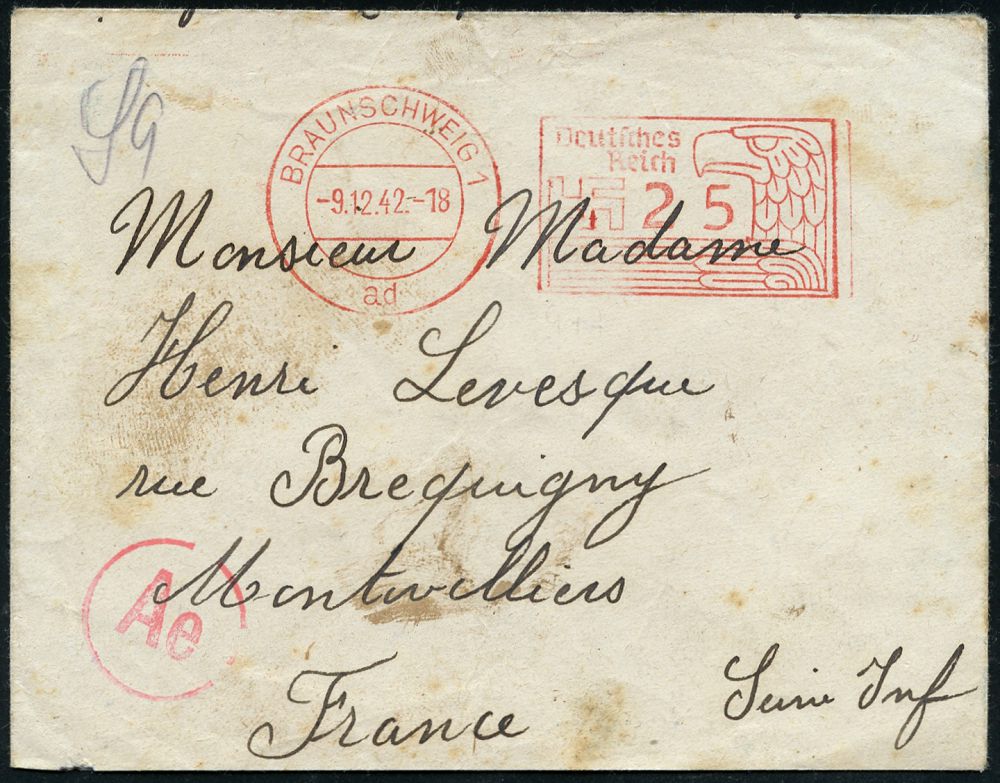 Sg
BRAUNSCHWEIG 1
-9.12.42.-18
ad
Deutsches
Reich
25
Monsieur Madame
Henri Levesque
rue Brequigny
Montivilliers
Ae
France
Seine Inf